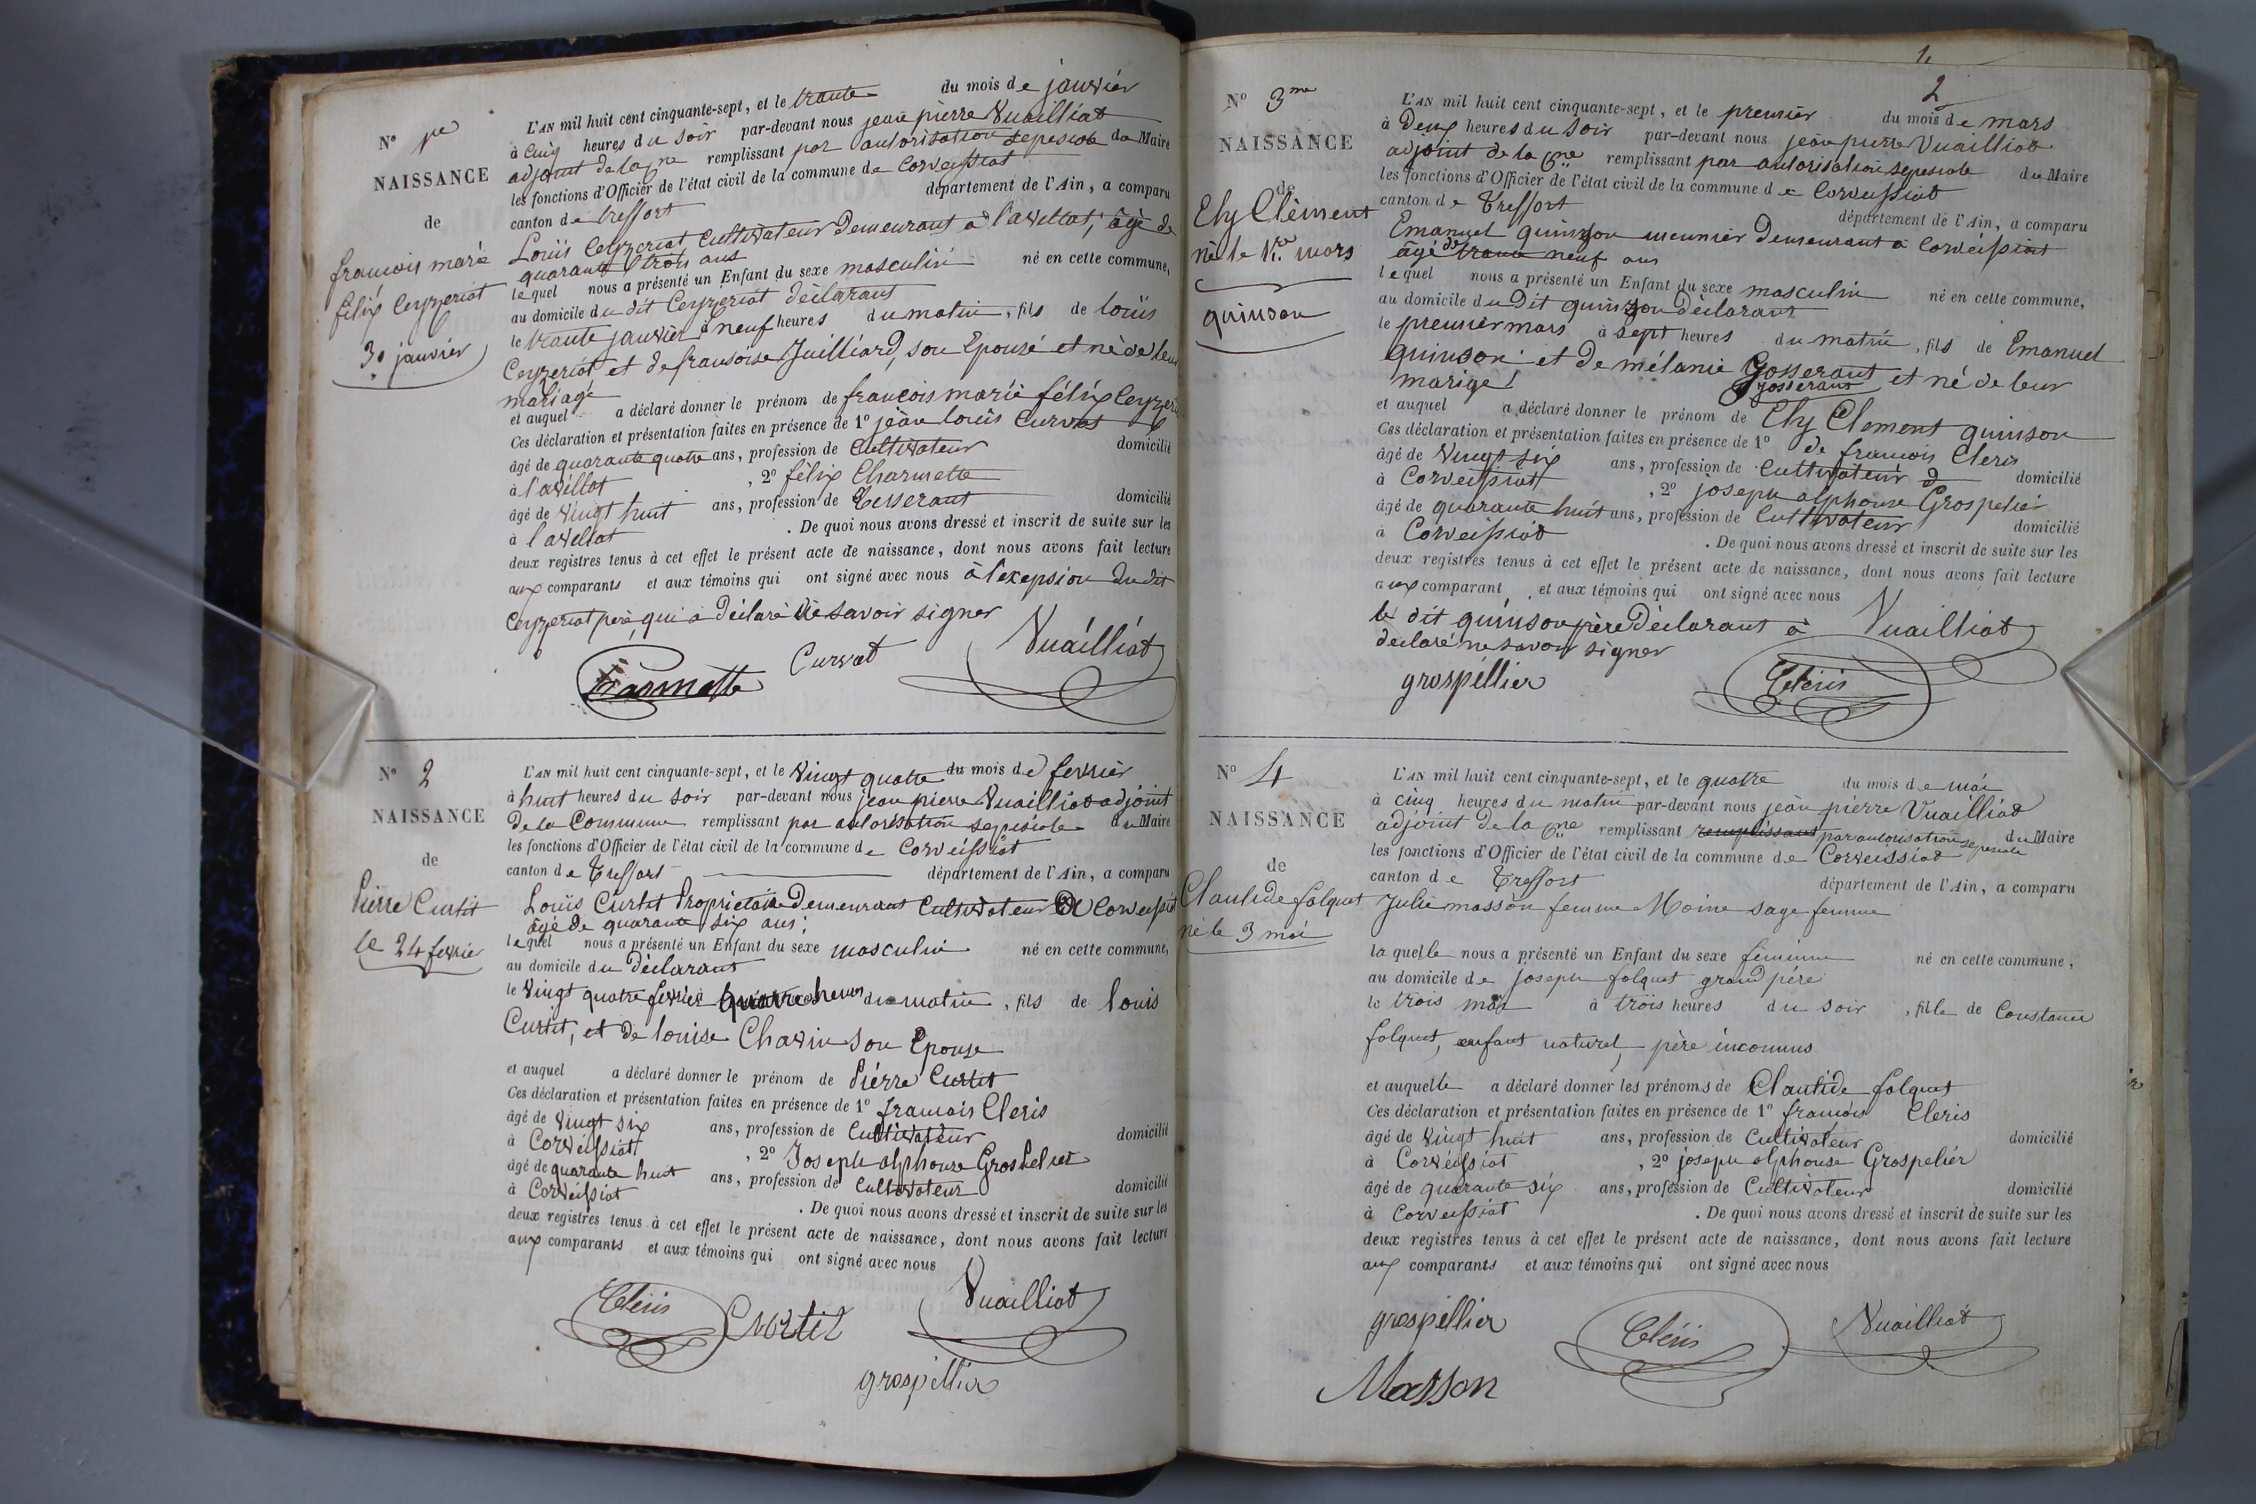 N° 1re
NAISSANCE
de
françois marie
félix Ceyzeriat
30 janvier
L'AN mil huit cent cinquante-sept, et le trante du mois de janvier
à cinq heures du soir par-devant nous jean pierre Vuailliat
adjoint de la cne remplissant par autorisation sepesiale du Maire
les fonctions d'Officier de l'état civil de la commune de Corveissiat
canton de treffort département de l'Ain, a comparu
Louis Ceyzeriat Cultivateur Demeurant a l'avellat, âgé de
quarante trois ans
lequel nous a présenté un Enfant du sexe masculin né en cette commune,
au domicile du dit Ceyzeriat déclarant
le trante janvier à neuf heures du matin, fils de louis
Ceyzeriat et de fransoise Juilliard, son Epouse et né de leur
mariage
et auquel a déclaré donner le prénom de françois marie félix Ceyzeriat
Ces déclaration et présentation faites en présence de 1° jean louis Curvat
âgé de quarante quatre ans, profession de Cultivateur domicilié
à l'avellat, 2° félix Charmette
âgé de vingt huit ans, profession de Tesserant domicilié
à l'avellat. De quoi nous avons dressé et inscrit de suite sur les
deux registres tenus à cet effet le présent acte de naissance, dont nous avons fait lecture
aux comparants et aux témoins qui ont signé avec nous à l'exepsion du dit
Ceyzeriat père qui a déclaré ne savoir signer
Curvat Vuailliat
Charmette
N° 2
NAISSANCE
de
Pierre Curtit
le 24 fevrier
L'AN mil huit cent cinquante-sept, et le vingt quatre du mois de fevrier
à huit heures du soir par-devant nous jean pierre Vuailliat adjoint
de la Commune remplissant par autorisation sepesiale du Maire
les fonctions d'Officier de l'état civil de la commune de Corveissiat
canton de Treffort département de l'Ain, a comparu
Louis Curtit Proprietaire Demeurant Cultivateur a Corveissiat
âgé de quarante six ans;
lequel nous a présenté un Enfant du sexe masculin né en cette commune,
au domicile du Déclarant
le vingt quatre fevrier quatre heures du matin, fils de louis
Curtit, et de louise Chavin son Epouse
et auquel a déclaré donner le prénom de Piérre Curtit
Ces déclaration et présentation faites en présence de 1° françois Cleris
âgé de vingt six ans, profession de Cultivateur domicilié
à Corveissiat, 2° Joseph alphonse Grospelier
âgé de quarante huit ans, profession de Cultivateur domicilié
à Corveissiat. De quoi nous avons dressé et inscrit de suite sur les
deux registres tenus à cet effet le présent acte de naissance, dont nous avons fait lecture
aux comparants et aux témoins qui ont signé avec nous
Cléris Curtil Vuailliat
grospellier
1,
2
N° 3me
NAISSANCE
de
Ely Clément
né le 1er mars
quinson
L'AN mil huit cent cinquante-sept, et le premier du mois de mars
à Deux heures du soir par-devant nous jean pierre Vuailliat
adjoint de la cne remplissant par autorisation sepesiale du Maire
les fonctions d'Officier de l'état civil de la commune de Corveissiat
canton de Treffort département de l'Ain, a comparu
Emanuel quinson meunier Demeurant a Corveissiat
âgé de trante neuf ans
lequel nous a présenté un Enfant du sexe masculin né en cette commune,
au domicile du Dit quinzon Déclarant
le premier mars à sept heures du matin, fils de Emanuel
quinson et de mélanie Gosserant et né de leur
marige josserant
et auquel a déclaré donner le prénom de Ely Clement quinson
Ces déclaration et présentation faites en présence de 1° de françois Cleris
âgé de vingt six ans, profession de Cultivateur domicilié
à Corveissiat, 2° joseph alphonse Grospelier
âgé de quarante huit ans, profession de Cultivateur domicilié
à Corveissiat. De quoi nous avons dressé et inscrit de suite sur les
deux registres tenus à cet effet le présent acte de naissance, dont nous avons fait lecture
aux comparant, et aux témoins qui ont signé avec nous
le dit quinson père Déclarant a Vuailliat
déclaré ne savoir signer
grospéllier Cléris
N° 4
NAISSANCE
de
Clautide folquet
né le 3 mai
L'AN mil huit cent cinquante-sept, et le quatre du mois de mai
à cinq heures du matin par-devant nous jean pierre Vuailliat
adjoint de la cne remplissant remplissant par autorisation sepesiale du Maire
les fonctions d'Officier de l'état civil de la commune de Corveissiat
canton de Treffort département de l'Ain, a comparu
Julie masson femme Moine sage femme
laquelle nous a présenté un Enfant du sexe feminin né en cette commune,
au domicile de Joseph folquet grand père
le trois mai à trois heures du soir, fille de Constance
folquet, enfant naturel, père inconnus
et auquelle a déclaré donner les prénoms de Clautide folquet
Ces déclaration et présentation faites en présence de 1° françois Cleris
âgé de vingt huit ans, profession de Cultivateur domicilié
à Corveissiat, 2° joseph alphonse Grospeliér
âgé de quarante six ans, profession de Cultivateur domicilié
à Corveissiat. De quoi nous avons dressé et inscrit de suite sur les
deux registres tenus à cet effet le présent acte de naissance, dont nous avons fait lecture
aux comparants et aux témoins qui ont signé avec nous
grospéllier Cléris Vuailliat
Masson